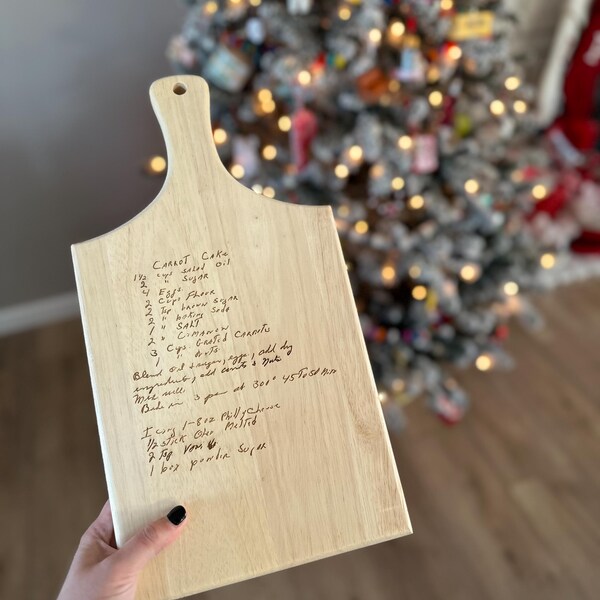 CARROT CAKE
1½ cups salad oil
2 " SugAR
4 Eggs
2 Cups Flour
2 Tsp brown Sugar
2 " baking Soda
1 " SALT
2 " CiNAMON
3 Cups GRATED CARROTS
1 " NUTS
Blend oil & sugar, eggs, add dry
ingredients, add carrots & Nuts
Mix well
Bake in 3 pans at 300° 45 To 50 Min
Icing 1-8oz Philly Cheese
1/2 Stick Oleo Melted
2 Tsp Vanilla
1 box powder Sugar